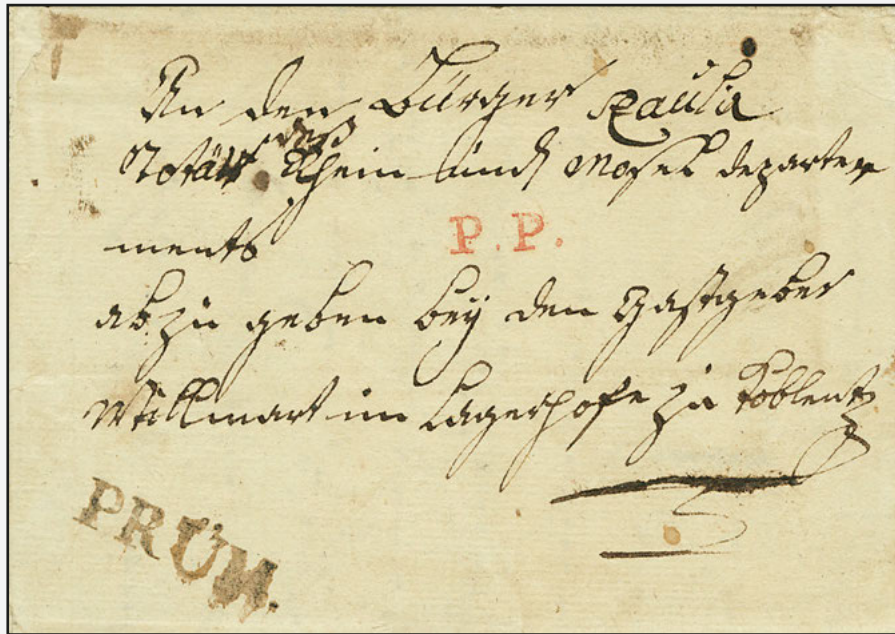 An den Bürger
des
Rhein und Mosel departe
ments
P. P.
abzu geben bey den Gastgeber
Willmart im Lagerhofe zu Koblentz
PRÜM.